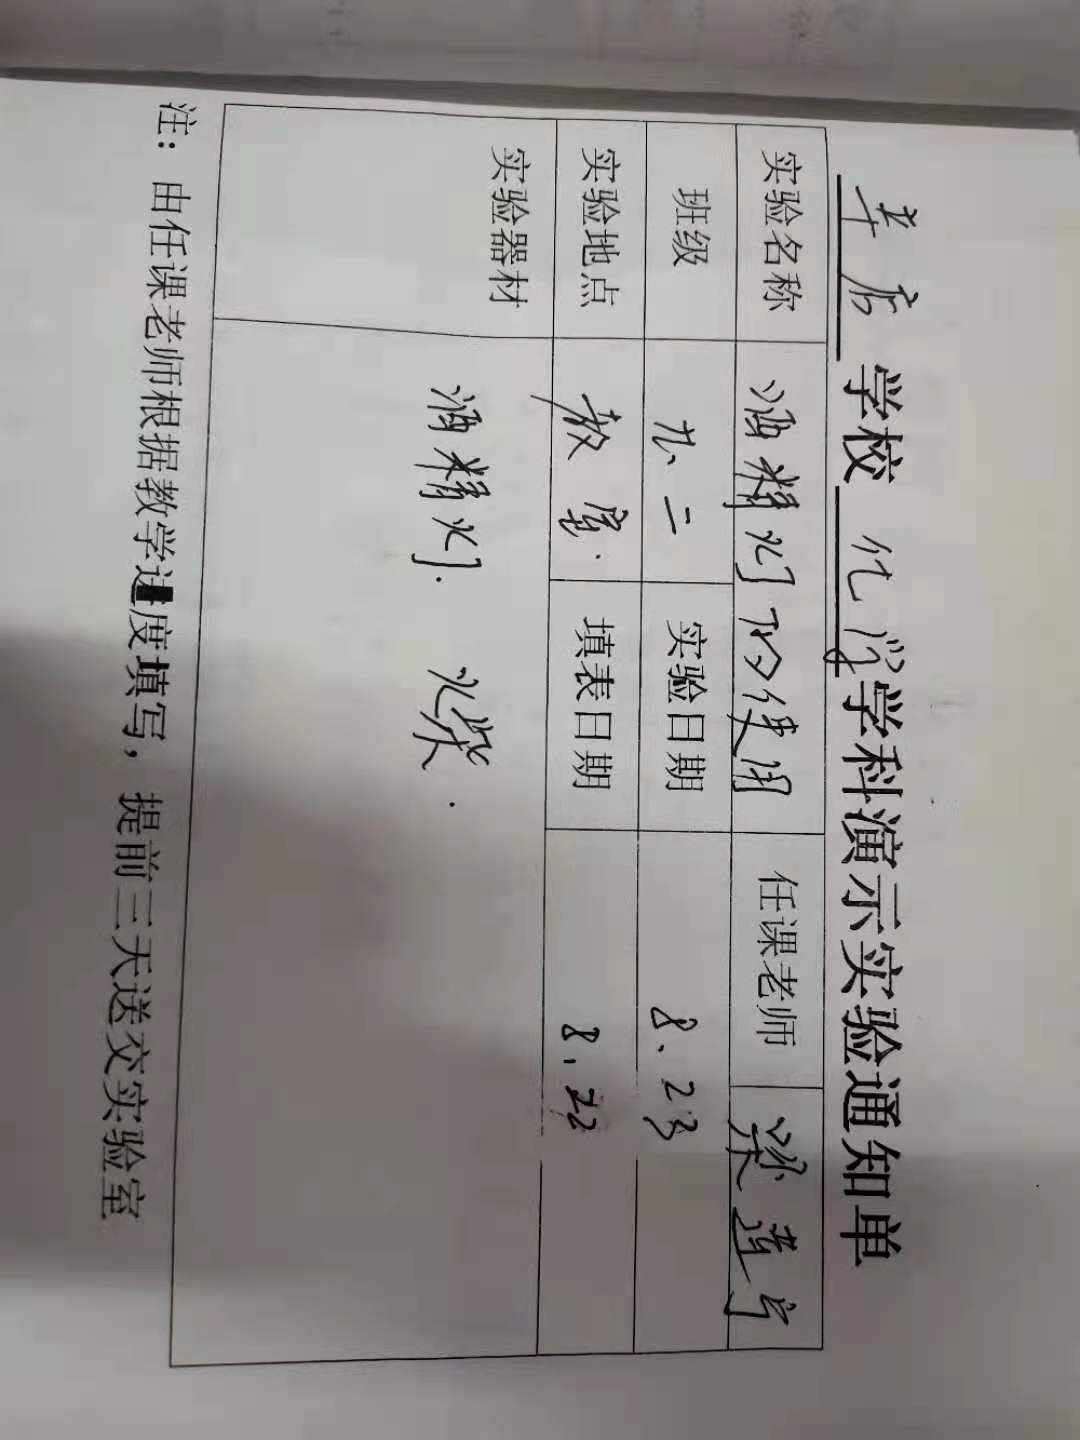 学校 化学学科演示实验通知单
实验名称 酒精灯的使用 任课老师 梁
班级 九、二 实验日期 8、23
实验地点 教室. 填表日期 8、22
实验器材 酒精灯. 火柴.
注：由任课老师根据教学进度填写，提前三天送交实验室